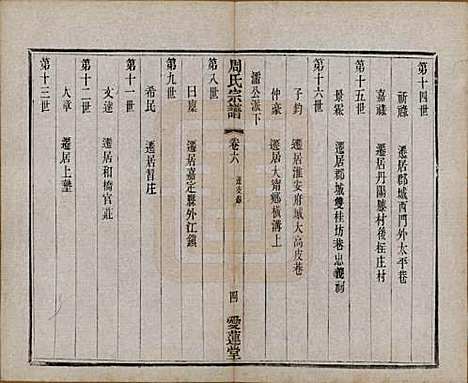 第十四世
祈祿　遷居郡城西門外太平巷
嘉祿　遷居丹陽縣村後莊村
第十五世
景宷　遷居郡城雙桂坊巷忠義祠
第十六世
子鈞　遷居淮安府城大高皮巷
仲豪　遷居大甯鄉橫溝上
濡公派下
周氏宗譜
卷六　遷支錄
四　愛蓮堂
第八世
日臺　遷居嘉定縣外江鎮
第九世
希民　遷居習庄
第十一世
友達　遷居和橋官莊
第十二世
大章　遷居上墊
第十三世